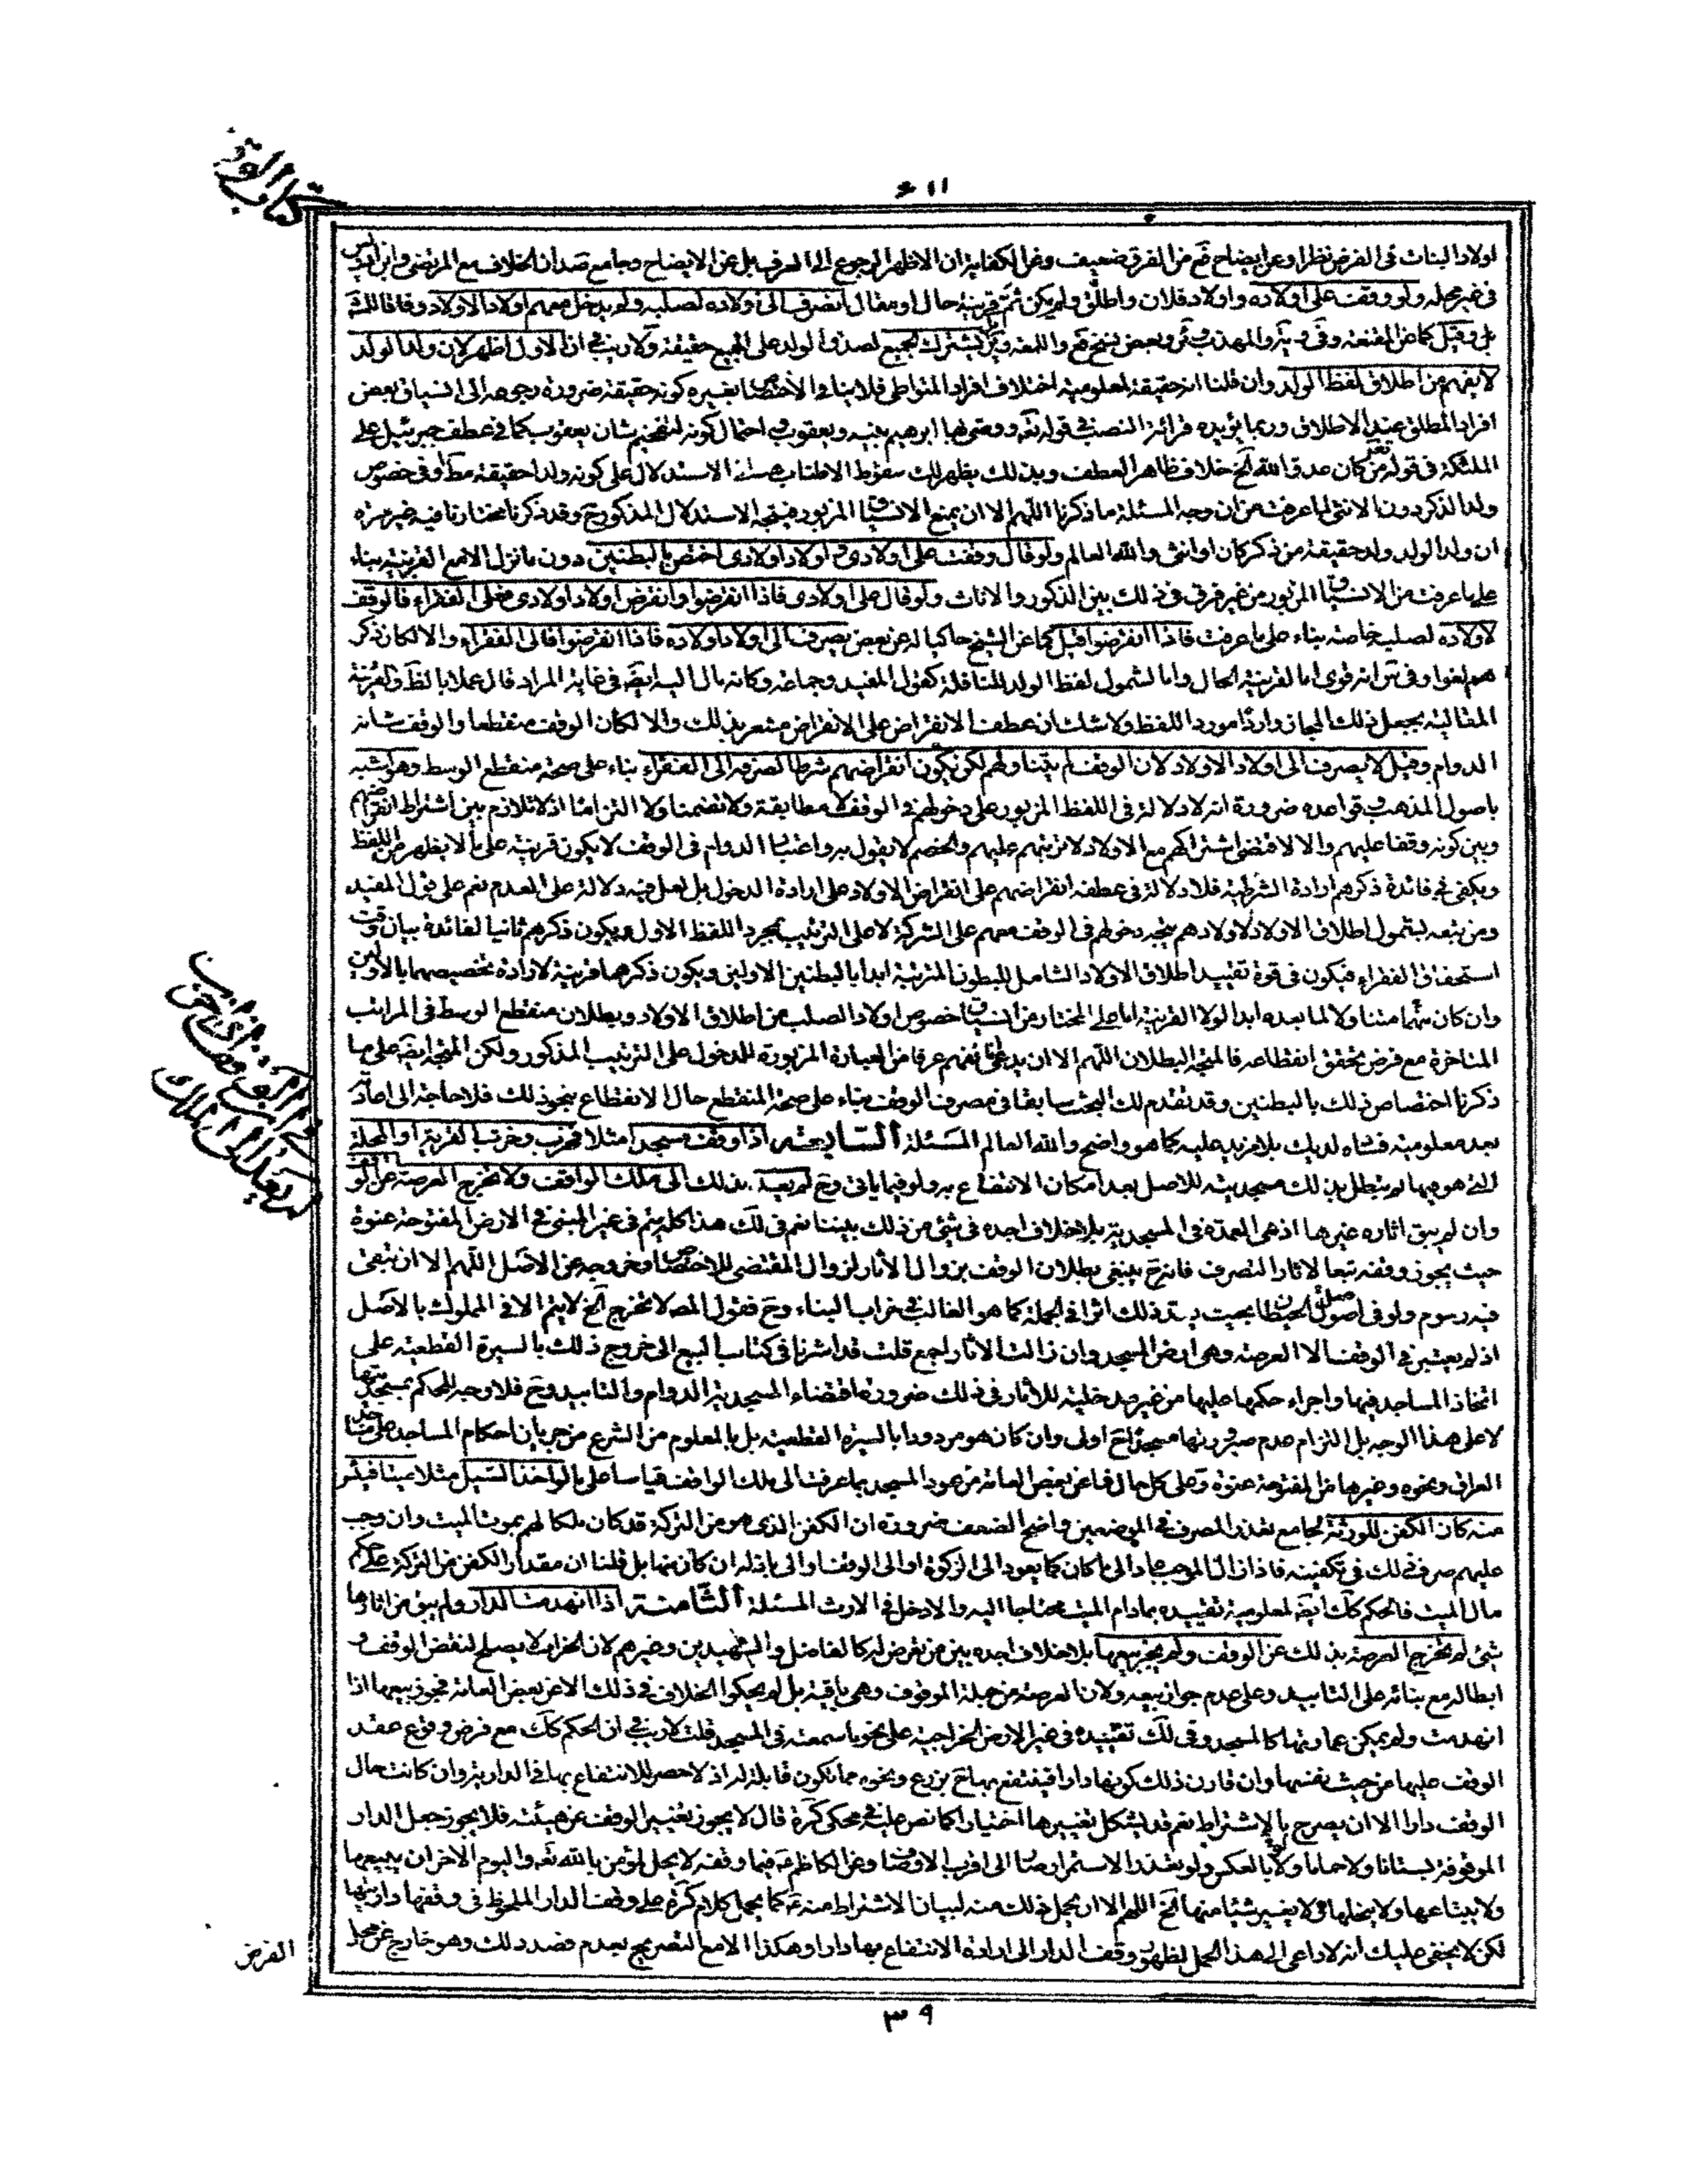 كتاب الوقف
اولاد البنات فى الفرض نظرا وعن ايضاح فع من الفرق ضعيف وعن الكفاية ان الاظهر الرجوع الى العرف بل عن الايضاح وجامع صد ان الخلاف مع المرتضى وابن ادريس
فى غير محله ولو وقف على اولاده واولاد فلان واطلق ولم يكن ثمة قرينة حال او مقال انصرف الى اولاده لصلبه ولم يدخل معهم اولاد الاولاد وفاقا
بل وقيل كما عن المقنعة وفى والمهذب وبعض نسخ فع واللمعة يشترك الجميع لصدق الولد على الجميع حقيقة ولا ريب فى ان الاول اظهر لان ولد الولد
لا يفهم من اطلاق لفظ الولد وان قلنا انه حقيقة لمعلومية اختلاف افراد المتواطى فلا ينافى الاختصاص بغيره كونه حقيقة ضرورة رجوعه الى انسياق بعض
افراد المطلق عند الاطلاق وربما يؤيده قرائة النصب فى قوله تعه ووصى بها ابرهيم بنيه ويعقوب واحتمال كونه لتفخيم شان يعقوب كما فى عطف جبرئيل على
الملئكة فى قوله تعه من كان عدوا لله الخ خلاف ظاهر العطف وبذلك يظهر لك سقوط الاطناب هنا الاستدلال على كونه ولدا حقيقة مط او فى خصوص
ولد الذكر دون الانثى لما عرفت من ان وجه المسئلة ما ذكرنا اللهم الا ان يمنع الانسياق المزبور فيتجه الاستدلال المذكور ح وقد ذكرنا مختارنا فيه غير مرة
ان ولد الولد ولد حقيقة من ذكر كان او انثى والله العالم ولو قال وقفت على اولادى واولاد اولادى اختص بالبطنين دون ما نزل الا مع القرينة بناء
على ما عرفت من الانسياق المزبور من غير فرق فى ذلك بين الذكور والاناث ولو قال على اولادى فاذا انقرضوا وانقرض اولاد اولادى فعلى الفقراء فالوقف
لاولاده لصلبه خاصة بناء على ما عرفت فاذا انقرضوا قيل كما عن الشيخ حاكيا له عن بعض يصرف الى اولاد اولاده فاذا انقرضوا فالى الفقراء والا لكان ذكر
هم لغوا وفى س انه قوى اما لقرينة الحال واما لشمول لفظ الولد للنافلة كقول المفيد وجماعة وكانه مال اليه ايضه فى غاية المراد قال عملا بالظ والقرينة
المقالية بجعل ذلك المجاز واردا مورد اللفظ ولا شك ان عطف الانقراض على الانقراض مشعر بذلك والا لكان الوقف منقطعا والوقف شانه
الدوام وقيل لا يصرف الى اولاد الاولاد لان الوقف لم يتناولهم لكن يكون انقراضهم شرطا لصرفه الى الفقراء بناء على صحة منقطع الوسط وهو اشبه
باصول المذهب وقواعده ضرورة انه لا دلالة فى اللفظ المزبور على دخولهم فى الوقف لا مطابقة ولا تضمنا ولا التزاما اذ لا تلازم بين اشتراط انقراضهم
وبين كونه وقفا عليهم والا لاقتضى اشتراكهم مع الاولاد لا ترتبهم عليهم والخصم لا يقول به واعتبار الدوام فى الوقف لا يكون قرينة على ما لا يظهر من اللفظ
ويكفى فى فائدة ذكرهم ارادة الشرطية فلا دلالة فى عطف انقراضهم على انقراض الاولاد على ارادة الدخول بل لعل فيه دلالة على العدم نعم على قول المفيد
ومن تبعه لشمول اطلاق الاولاد لاولادهم يتجه دخولهم فى الوقف معهم على الشركة لا على الترتيب بمجرد اللفظ الاول ويكون ذكرهم ثانيا لفائدة بيان وقت
استحقاق الفقراء فيكون فى قوة تقييد اطلاق الاولاد الشامل للبطون المترتبة ابدا بالبطنين الاولين ويكون ذكرهما قرينة لارادة تخصيصهما بالاولين
وان كان متناولا لما بعده ابدا لولا القرينة اما على المختار من انسياق خصوص اولاد الصلب من اطلاق الاولاد وبطلان منقطع الوسط فى المراتب
المتاخرة مع فرض تحقق انقطاعه فالمتجه البطلان اللهم الا ان يدعى انا نفهم عرفا من العبارة المزبورة الدخول على الترتيب المذكور ولكن المتجه ايضه على ما
ذكرنا اختصاص ذلك بالبطنين وقد تقدم لك البحث سابقا فى مصرف الوقف بناء على صحة المنقطع حال الانقطاع بنحو ذلك فلا حاجة الى اعادته
بعد معلومية منشاه لديك بلا مزيد عليه كما هو واضح والله العالم المسئلة السابعة اذا وقف مسجدا مثلا فخرب او خربت القرية او المحلة
التى هو فيها لم يبطل بذلك مسجديته للاصل بعد امكان الانتفاع به ولو فيما ياتى وح لم يعد بذلك الى ملك الواقف ولا تخرج العرصة عن الوقف
وان لم يبق اثاره غيرها اذ هى العمدة فى المسجدية بلا خلاف اجده فى شئ من ذلك بيننا نعم فى لك هذا كله يتم فى غير المبنى فى الارض المفتوحة عنوة
حيث يجوز وقفه تبعا لاثار التصرف فانه ح ينبغى بطلان الوقف بزوال الاثار لزوال المقتضى للاختصاص وخروجه عن الاصل اللهم الا ان تبقى
فيه رسوم ولو فى اصول الحيطان بحيث يعد ذلك اثرا فى الجملة كما هو الغالب فى خراب البناء وح فقول المصه لا تخرج الخ لا يتم الا فى المملوك بالاصل
اذ لم يعتبر فى الوقف الا العرصة وهى ارض المسجد وان زالت الاثار اجمع قلت قد اشرنا فى كتاب البيع الى خروج ذلك بالسيرة القطعية على
اتخاذ المساجد فيها واجراء حكمها عليها من غير مدخلية للاثار فى ذلك ضرورة اقتضاء المسجدية الدوام والتابيد وح فلا وجه للحكم بمسجديتها
لا على هذا الوجه بل التزام عدم صيرورتها مسجدا ح اولى وان كان هو مردودا بالسيرة القطعية بل بالمعلوم من الشرع من جريان احكام المساجد على مساجد
العراق ونحوه وغيرها من المفتوحة عنوة وعلى كل حال فما عن بعض العامة من عود المسجد بما عرفت الى ملك الواقف قياسا على ما لو اخذ السيل مثلا ميتا فيئس
منه كان الكفن للورثة بجامع تعذر المصرف فى الموضعين واضح الضعف ضرورة ان الكفن الذى هو من التركة قد كان ملكا لهم بموت الميت وان وجب
عليهم صرف ذلك فى تكفينه فاذا زال الموجب عاد الى ما كان كما يعود الى الزكوة او الى الوقف او الى باذله ان كان منها بل قلنا ان مقدار الكفن من التركة على حكم
مال الميت فالحكم كك ايضه لمعلومية تقييده بما دام الميت محتاجا اليه والا دخل فى الارث المسئلة الثامنة اذا انهدمت الدار ولم يبق من اثارها
شئ لم تخرج العرصة بذلك عن الوقف ولم يجز بيعها بلا خلاف اجده بين من تعرض له كالفاضل والشهيدين وغيرهم لان الخراب لا يصلح لنقض الوقف و
ابطاله مع بنائه على التابيد وعلى عدم جواز بيعه ولان العرصة من جملة الموقوف وهى باقية بل لم يحكوا الخلاف فى ذلك الا عن بعض العامة فجوز بيعها اذا
انهدمت ولم يمكن عمارتها كالمسجد وفى لك تقييده فى غير الارض الخراجية على نحو ما سمعته فى المسجد قلت لا ريب فى ان الحكم كك مع فرض وقوع عقد
الوقف عليها من حيث نفسها وان قارن ذلك كونها دارا فينتفع بها ح بزرع ونحوه مما تكون قابلة له اذ لا حصر للانتفاع بها فى الدارية وان كانت حال
الوقف دارا الا ان يصرح بالاشتراط نعم قد يشكل تغييرها اختيارا كما نص عليه فى محكى كره قال لا يجوز تغيير الوقف عن هيئته فلا يجوز جعل الدار
الموقوفة بستانا ولا حماما ولا بالعكس ولو تعذر الاستمرار صار الى اقرب الاوصاف وعن الكاظم ع فيما وقفه لا يحل لمؤمن بالله تعه واليوم الاخر ان يبيعها
ولا يبتاعها ولا ينحلها ولا يغير شيئا منها الخ اللهم الا ان يحمل ذلك منه لبيان الاشتراط منه ع كما يحمل كلام كره على وقف الدار الملحوظ فى وقفها داريتها
لكن لا يخفى عليك انه لا داعى الى هذا الحمل لظهور وقف الدار الى ارادة الانتفاع بها دارا وهكذا الا مع التصريح بعدم قصد ذلك وهو خارج عن محل
الفرض
٣٩